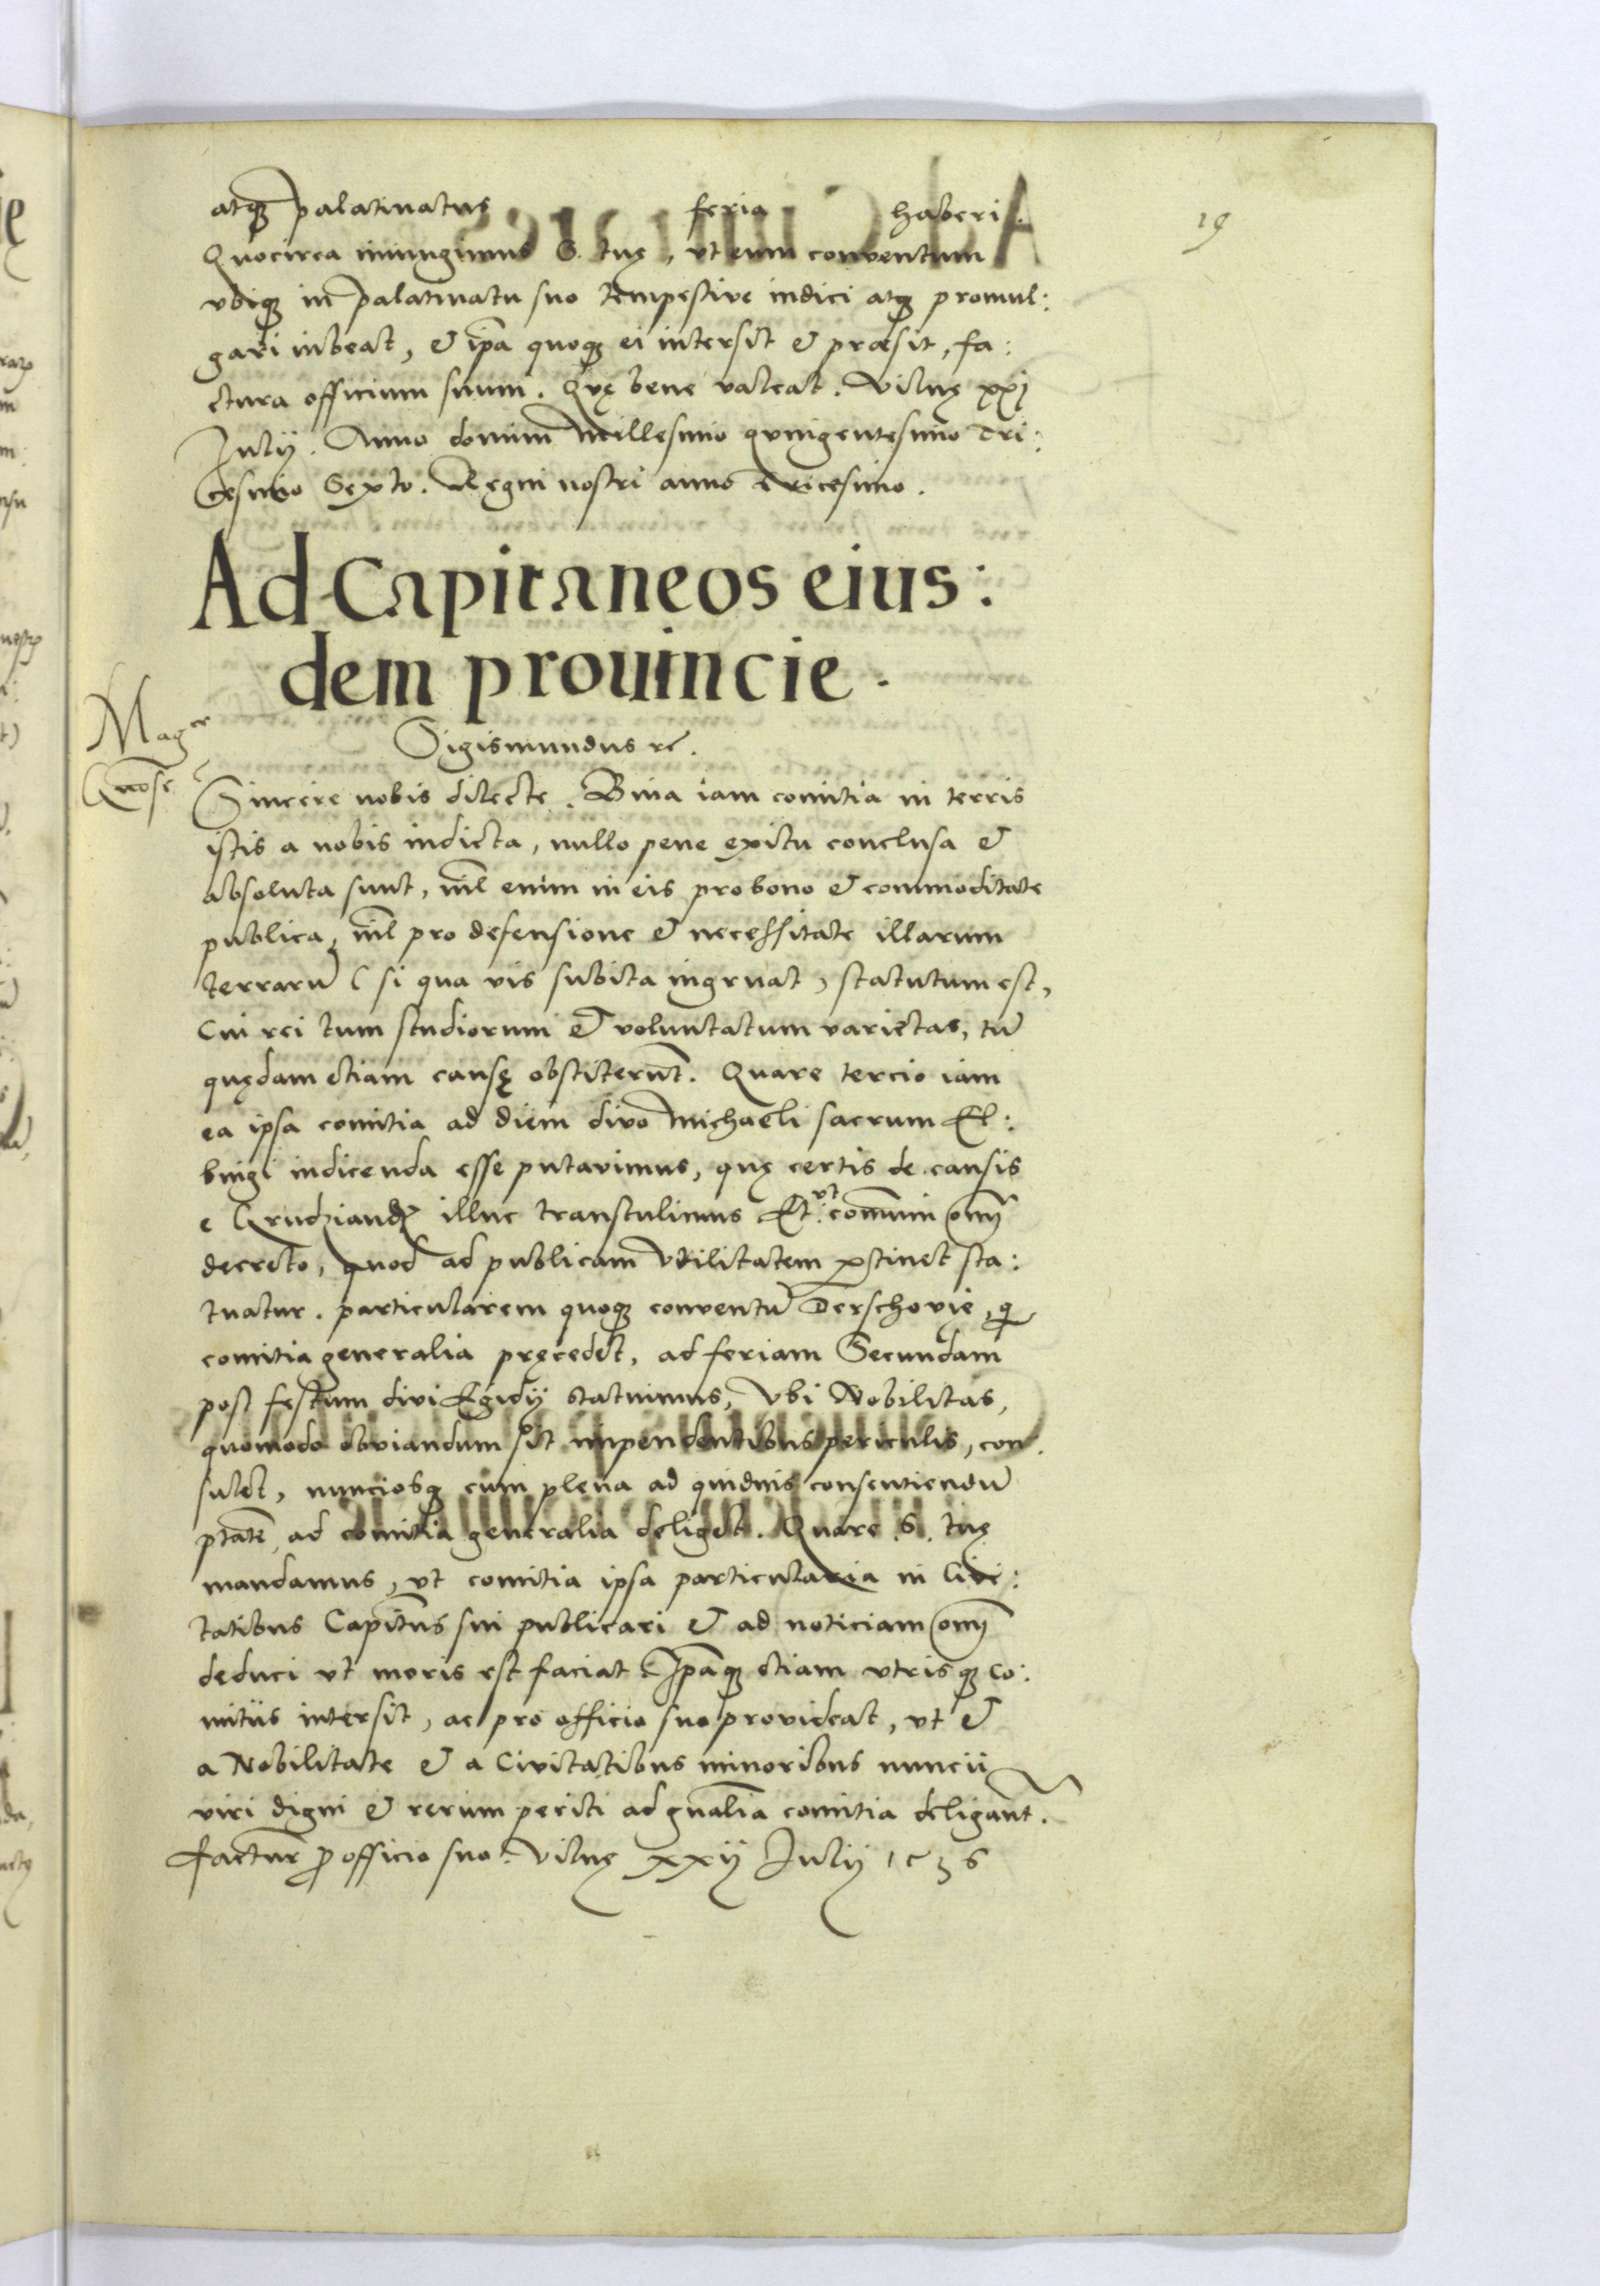 19
atq₃ palatinatus feria haberi.
Quocirca iniungimus S. tuę, vt eum conventum
vbiq₃ in palatinatu suo tempestive indici atq₃ promul:
gari iubeat, & ip̄a quoq₃ ei intersit & præsit, fa:
ctura officium suum. Quę bene valeat. Vilnę xxj
Julij. Anno domini Millesimo quingentesimo Tri:
cesimo Sexto. Regni nostri anno Tricesimo.
Ad Capitaneos eius:
dem prouincie.
Sigismundus rc̄.
Mag^ce
Gnose
Sincere nobis dilecte. Bina iam comitia in terris
istis a nobis indicta, nullo pene exitu conclusa &
absoluta sunt, nīl enim in eis pro bono & commoditate
publica, nīl pro defensione & necessitate illarum
terrarū (si qua vis subita ingruat) statutum est,
Cui rei tum studiorum & voluntatum varietas, tū
quędam etiam causę obstiterūt. Quare tercio iam
ea ipsa comitia ad diem divo Michaeli sacrum El:
bingi indicenda esse putavimus, quę certis de causis
e Grudziandz illuc transtulimus Et: vt com̄uni om̄i
decreto, quod ad publicam vtilitatem ꝑtinet sta:
tuatur. particularem quoq₃ conventū Derschovię, q̄
comitia generalia pręcedet, ad feriam Secundam
post festum divi Egidij statuimus, Vbi Nobilitas,
quomodo obviandum sit impendentibus periculis, con
sulet, nunciosq₃ cum plena ad quidvis consentiendū
ptātē ad comitia generalia deliget. Quare S. tuę
mandamus, vt comitia ipsa particularia in Civi:
tatibus Capit̄us sui publicari & ad noticiam om̄i
deduci vt moris est faciat Ip̄aq₃ etiam vtrisq₃ co:
mitiis intersit, ac pro officio suo provideat, vt &
a Nobilitate & a Civitatibus minoribus nuncii
viri digni & rerum periti ad gn̄alia comitia deligant̄.
factur̄ ꝓ officio suo. Vilnę xxij Julij 1536